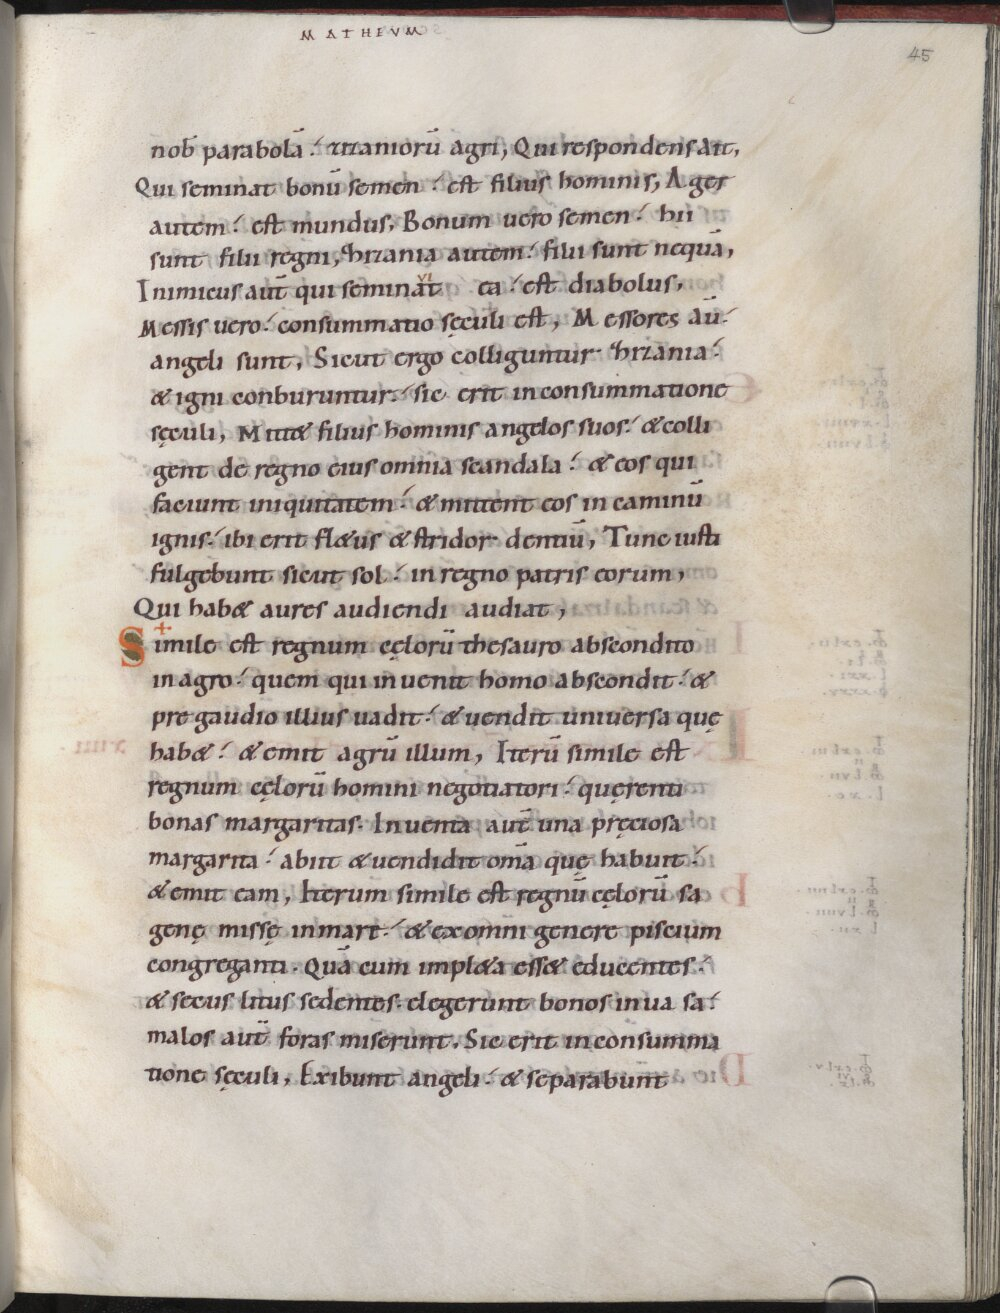 MATHEVM
45
nob̄ parabolā . zizaniorū agri, Qui respondens ait,
Qui seminat bonū semen . est filius hominis, Ager
autem . est mundus, Bonum uero semen . hii
sunt filii regni, zizania autem . filii sunt nequā,
Inimicus aut̄ qui seminauit ea . est diabolus,
Messis uero . consummatio sęculi est, Messores aū .
angeli sunt, Sicut ergo colliguntur zizania .
& igni conburuntur . sic erit in consummatione
sęculi, Mitt& filius hominis angelos suos . & colli
gent de regno eius omnia scandala . & eos qui
faciunt iniquitatem . & mittent eos in caminū
ignis . ibi erit fl&us & stridor dentiū, Tunc iusti
fulgebunt sicut sol . in regno patris eorum,
Qui hab& aures audiendi audiat,
Simile est regnum cęlorū thesauro abscondito
in agro . quem qui inuenit homo abscondit . &
pre gaudio illius uadit . & uendit uniuersa quę
hab& . & emit agrū illum, Iterū simile est
regnum cęlorū homini negotiatori . quęrenti
bonas margaritas. Inuenta aut̄ una pręciosa
margarita . abiit & uendidit om̄a quę habuit .
& emit eam, Iterum simile est regnū cęlorū sa
genę missę in mare . & ex omni genere piscium
congreganti. Quā cum impl&a ess& educentes .
& secus litus sedentes. elegerunt bonos in uasa .
malos aut̄ foras miserunt. Sic erit in consumma
tione sęculi, Exibunt angeli . & separabunt